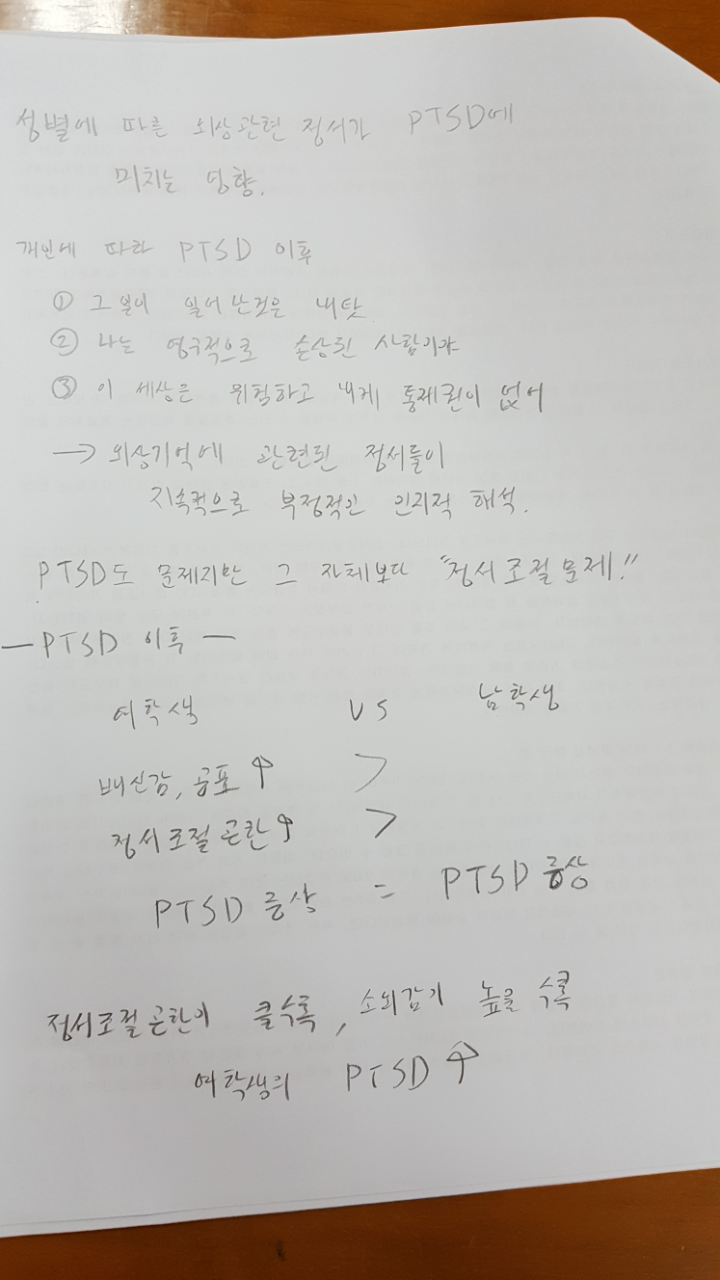 성별에 따른 외상관련 정서가 PTSD에
미치는 영향.
개인에 따라 PTSD 이후
① 그 일이 일어난것은 내탓
② 나는 영구적으로 손상된 사람이야
③ 이 세상은 위험하고 내게 통제권이 없어
→ 외상기억에 관련된 정서들이
지속적으로 부정적인 인지적 해석.
PTSD도 문제지만 그 자체보다 "정서조절문제!!"
— PTSD 이후 —
여학생 VS 남학생
배신감, 공포 ↑ >
정서조절 곤란 ↑ >
PTSD 증상 = PTSD 증상
정서조절곤란이 클수록, 소외감이 높을수록
여학생의 PTSD ↑